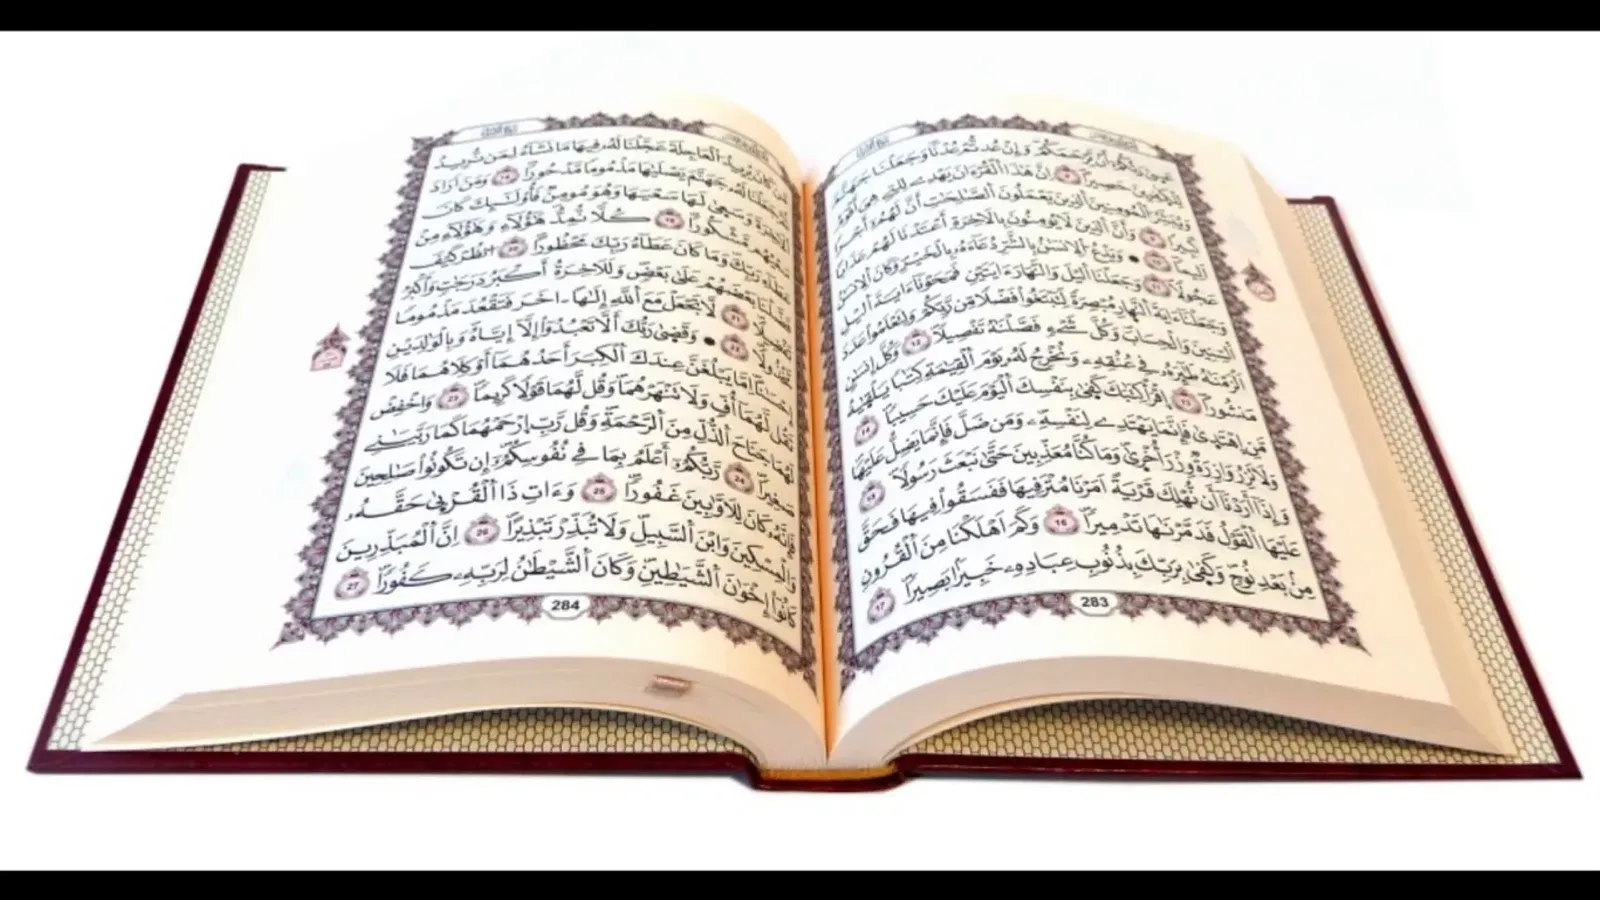 عَسىٰ رَبُّكُمُۥ أَنْ يَّرْحَمَكُمْ وَإِنْ عُدتُّمْ عُدْنَا وَجَعَلْنَا جَهَنَّمَ
لِلْكٰفِرِينَ حَصِيراً 8 إِنَّ هَٰذَا اَ۬لْقُرْءَانَ يَهْدِے لِلتِے هِيَ أَقْوَمُ
وَيُبَشِّرُ اُ۬لْمُومِنِينَ اَ۬لذِينَ يَعْمَلُونَ اَ۬لصَّٰلِحَٰتِ أَنَّ لَهُمُۥٓ أَجْراً
كَبِيراً 9 وَأَنَّ اَ۬لذِينَ لَا يُومِنُونَ بِالَاخِرَةِ أَعْتَدْنَا لَهُمْ عَذَاباً
اَلِيماً 10 • وَيَدْعُ اُ۬لِانسَٰنُ بِالشَّرِّ دُعَآءَهُۥ بِالْخَيْرِ وَكَانَ اَ۬لِانسَٰنُ
عَجُولاً 11 وَجَعَلْنَا اَ۬ليْلَ وَالنَّهَارَ ءَايَتَيْنِ فَمَحَوْنَآ ءَايَةَ اَ۬ليْلِ
وَجَعَلْنَآ ءَايَةَ اَ۬لنَّهَارِ مُبْصِرَةً لِّتَبْتَغُواْ فَضْلاً مِّن رَّبِّكُمْ وَلِتَعْلَمُواْ عَدَدَ
اَ۬لسِّنِينَ وَالْحِسَابَ وَكُلَّ شَےْءٍ فَصَّلْنَٰهُ تَفْصِيلاً 12 وَكُلَّ إِنسَٰنٍ
اَلْزَمْنَٰهُ طَٰٓئِرَهُۥ فِے عُنُقِهِۦ وَنُخْرِجُ لَهُۥ يَوْمَ اَ۬لْقِيَٰمَةِ كِتَٰباً يَلْقَيٰهُ
مَنشُوراً 13 اِ۪قْرَأْ كِتَٰبَكَ كَفيٰ بِنَفْسِكَ اَ۬لْيَوْمَ عَلَيْكَ حَسِيباً 14
مَّنِ اِ۪هْتَدىٰ فَإِنَّمَا يَهْتَدِے لِنَفْسِهِۦ وَمَن ضَلَّ فَإِنَّمَا يَضِلُّ عَلَيْهَا
وَلَا تَزِرُ وَازِرَةٌ وِزْرَ أُخْرىٰ وَمَا كُنَّا مُعَذِّبِينَ حَتَّىٰ نَبْعَثَ رَسُولاً 15
وَإِذَآ أَرَدْنَآ أَن نُّهْلِكَ قَرْيَةً اَمَرْنَا مُتْرَفِيهَا فَفَسَقُواْ فِيهَا فَحَقَّ
عَلَيْهَا اَ۬لْقَوْلُ فَدَمَّرْنَٰهَا تَدْمِيراً 16 وَكَمَ اَهْلَكْنَا مِنَ اَ۬لْقُرُونِ
مِنۢ بَعْدِ نُوحٍ وَكَفيٰ بِرَبِّكَ بِذُنُوبِ عِبَادِهِۦ خَبِيراَۢ بَصِيراً 17
283
مَّن كَانَ يُرِيدُ اُ۬لْعَاجِلَةَ عَجَّلْنَا لَهُۥ فِيهَا مَا نَشَآءُ لِمَن نُّرِيدُ
ثُمَّ جَعَلْنَا لَهُۥ جَهَنَّمَ يَصْلَيٰهَا مَذْمُوماً مَّدْحُوراً 18 وَمَنَ اَرَادَ
اَ۬لَاخِرَةَ وَسَعىٰ لَهَا سَعْيَهَا وَهُوَ مُومِنٌ فَأُوْلَٰٓئِكَ كَانَ
سَعْيُهُم مَّشْكُوراً 19 كُلّاً نُّمِدُّ هَٰٓؤُلَآءِ وَهَٰٓؤُلَآءِ مِنْ
عَطَآءِ رَبِّكَ وَمَا كَانَ عَطَآءُ رَبِّكَ مَحْظُوراً 20 اُ۟نظُرْ كَيْفَ
فَضَّلْنَا بَعْضَهُمْ عَلَىٰ بَعْضٍ وَلَلَاخِرَةُ أَكْبَرُ دَرَجَٰتٍ وَأَكْبَرُ
تَفْضِيلاً 21 لَّا تَجْعَلْ مَعَ اَ۬للَّهِ إِلَٰهاً ـاخَرَ فَتَقْعُدَ مَذْمُوماً
مَّخْذُولاً 22 • وَقَضىٰ رَبُّكَ أَلَّا تَعْبُدُوٓاْ إِلَّآ إِيَّاهُ وَبِالْوَٰلِدَيْنِ
إِحْسَٰناً اِمَّا يَبْلُغَنَّ عِندَكَ اَ۬لْكِبَرَ أَحَدُهُمَآ أَوْ كِلَٰهُمَا فَلَا
تَقُل لَّهُمَآ أُفٍّ وَلَا تَنْهَرْهُمَا وَقُل لَّهُمَا قَوْلاً كَرِيماً 23 وَاخْفِضْ
لَهُمَا جَنَاحَ اَ۬لذُّلِّ مِنَ اَ۬لرَّحْمَةِ وَقُل رَّبِّ اِ۪رْحَمْهُمَا كَمَا رَبَّيَٰنِے
صَغِيراً 24 رَّبُّكُمُۥٓ أَعْلَمُ بِمَا فِے نُفُوسِكُمُۥٓ إِن تَكُونُواْ صَٰلِحِينَ
فَإِنَّهُۥ كَانَ لِلَاوَّٰبِينَ غَفُوراً 25 وَءَاتِ ذَا اَ۬لْقُرْبىٰ حَقَّهُۥ
وَالْمِسْكِينَ وَابْنَ اَ۬لسَّبِيلِ وَلَا تُبَذِّرْ تَبْذِيراً 26 اِنَّ اَ۬لْمُبَذِّرِينَ
كَانُوٓاْ إِخْوَٰنَ اَ۬لشَّيَٰطِينِ وَكَانَ اَ۬لشَّيْطَٰنُ لِرَبِّهِۦ كَفُوراً 27
284